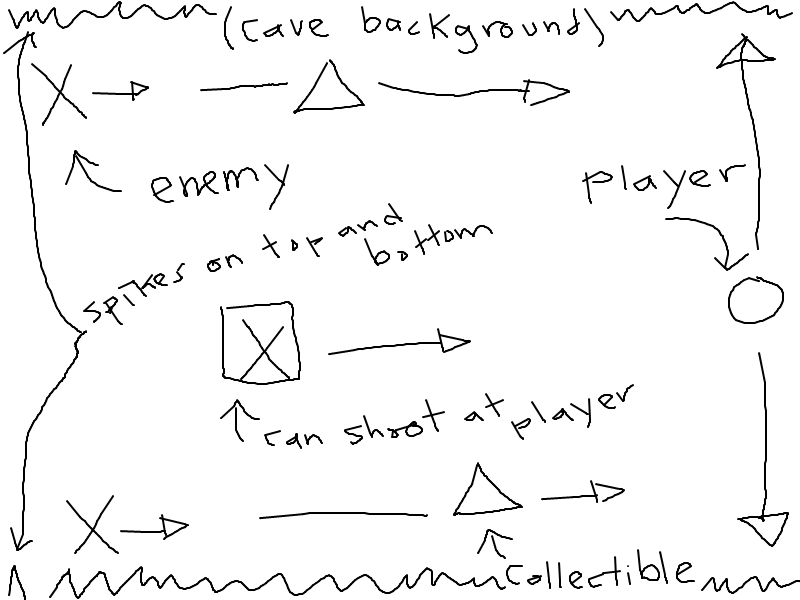 (cave background)
enemy
player
spikes on top and
bottom
can shoot at player
collectible